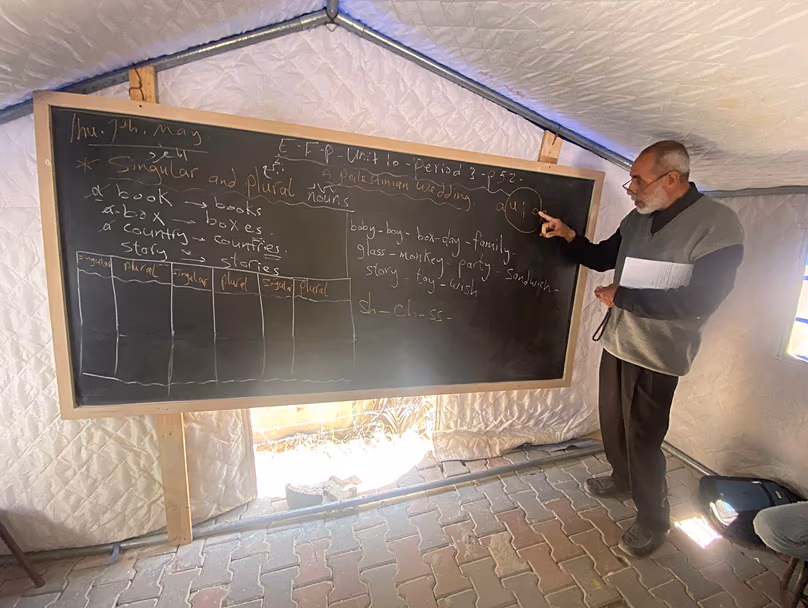 Thu. 7th. May
E-F-p-Unit 10-period 3-p52-
A Palestinian Wedding
* Singular and plural nouns
a book → books
a box → boxes.
a country → countries
story → stories
a u i
baby-boy-box-day-family-
glass-monkey-party-sandwich-
story-toy-wish
sh-ch-ss-
singular plural singular plural singular plural